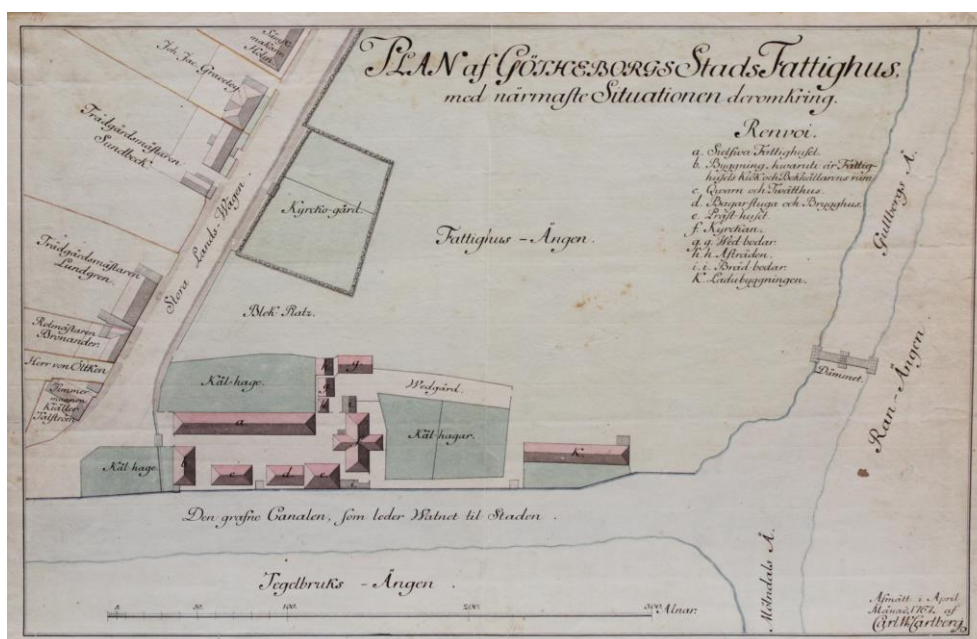 PLAN af GÖTHEBORGS Stads Fattighus,
med närmaste Situationen deromkring.
Renvoi.
a. Sielfwa Fattighuset.
b. Byggning, hwarute är Fattig-
husets Kiök och Bokhållarens rum.
c. Qwarn och Twätthus.
d. Bagarstuga och Brygghus.
e. Präst-huset.
f. Kyrckan.
g. g. Wed-bodar.
h. h. Afträden.
i. i. Bräd-bodar.
K. Ladubyggningen.
Joh. Jac.
Trädgårdsmästaren
Sundbeck.
Trädgårdsmästaren
Lundgren.
Bronander.
Herr von Öttken
Timmer
mannen
Stora Lands-Wägen
Kyrcko-gård.
Fattighus-Ängen.
Blek Platz.
Gullbergs Å.
Dämmet.
Ran-Ängen
Kål-hage.
h
g.
Wedgård.
a
Kål-hagar.
K.
Kål-hage.
c
d
e
i.
Den grafne Canalen, som leder Watnet til Staden.
Tegelbruks-Ängen.
Mölndals Å.
50.
100.
200.
300. Alnar.
Afmätt i April
Månad, 1762. af
Carl W: Carlberg.